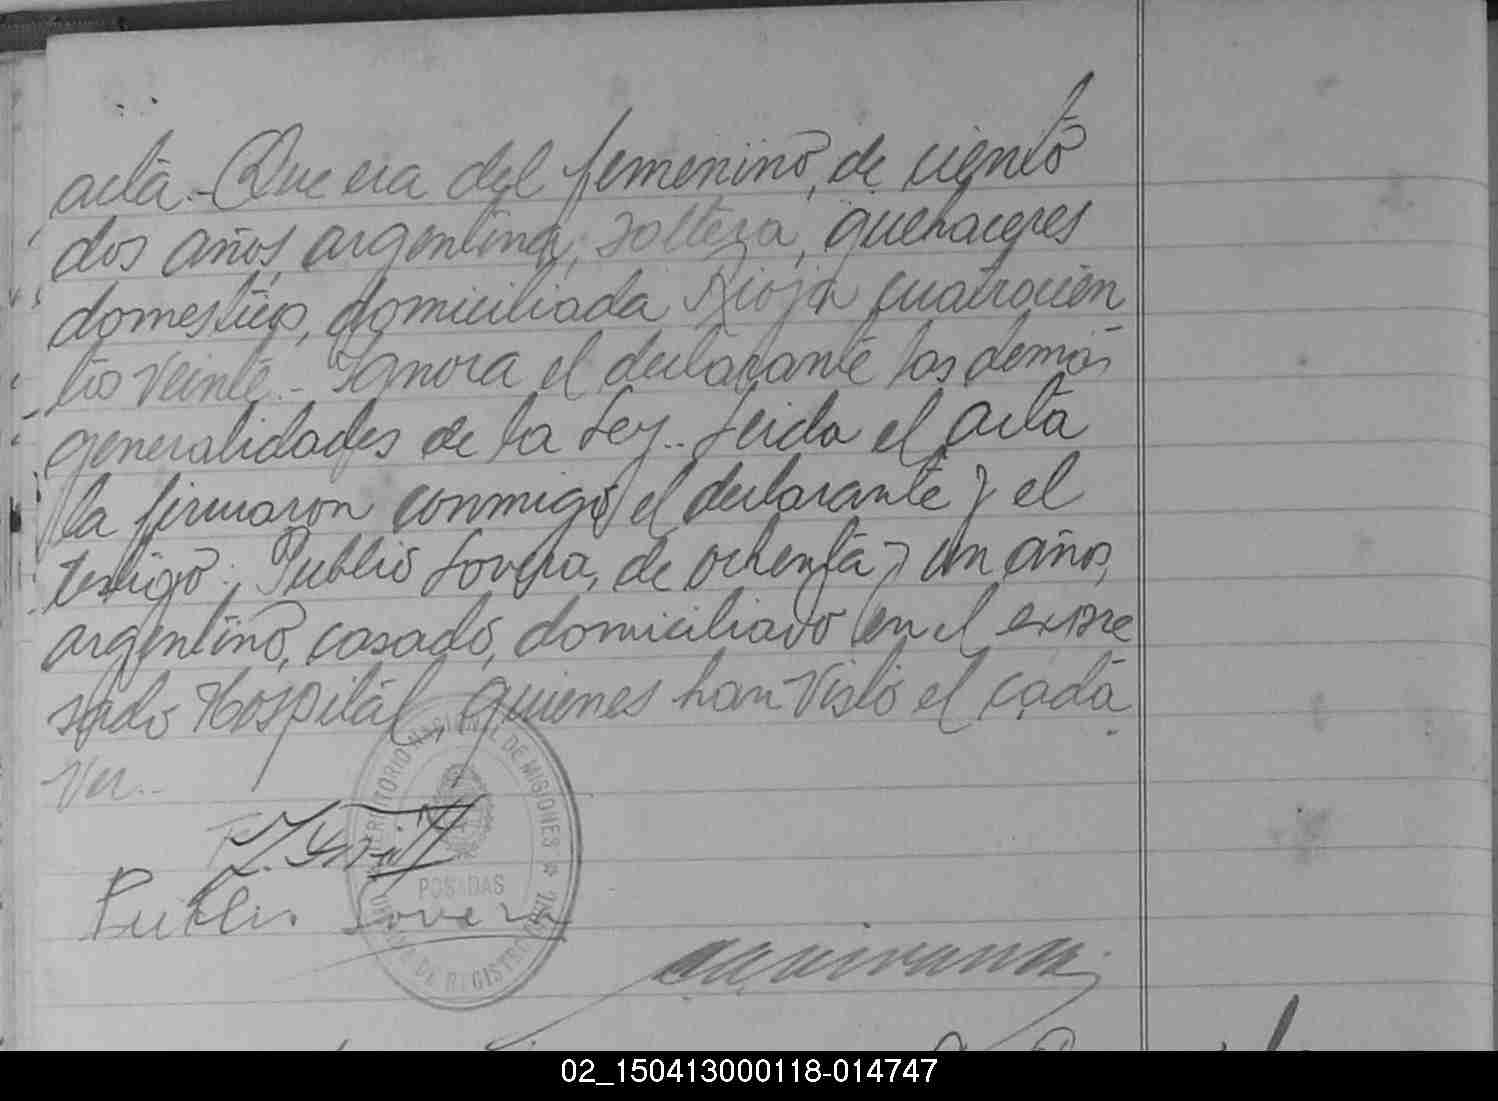 acta.- Que era del femenino, de ciento
dos años, argentina, soltera, quehaceres
domesticos, domiciliada Rioja cuatrocien
tos veinte.- Ignora el declarante las demás
generalidades de la Ley.. Leida el acta
la firmaron conmigo el declarante y el
testigo: Publio Lovera, de ochenta y un años,
argentino, casado, domiciliado en el expre
sado Hospital, quienes han visto el cadá
ver..-
TERRITORIO NACIONAL DE MISIONES
POSADAS
DE REGISTRO CIVIL
Publio Lovera
02_150413000118-014747